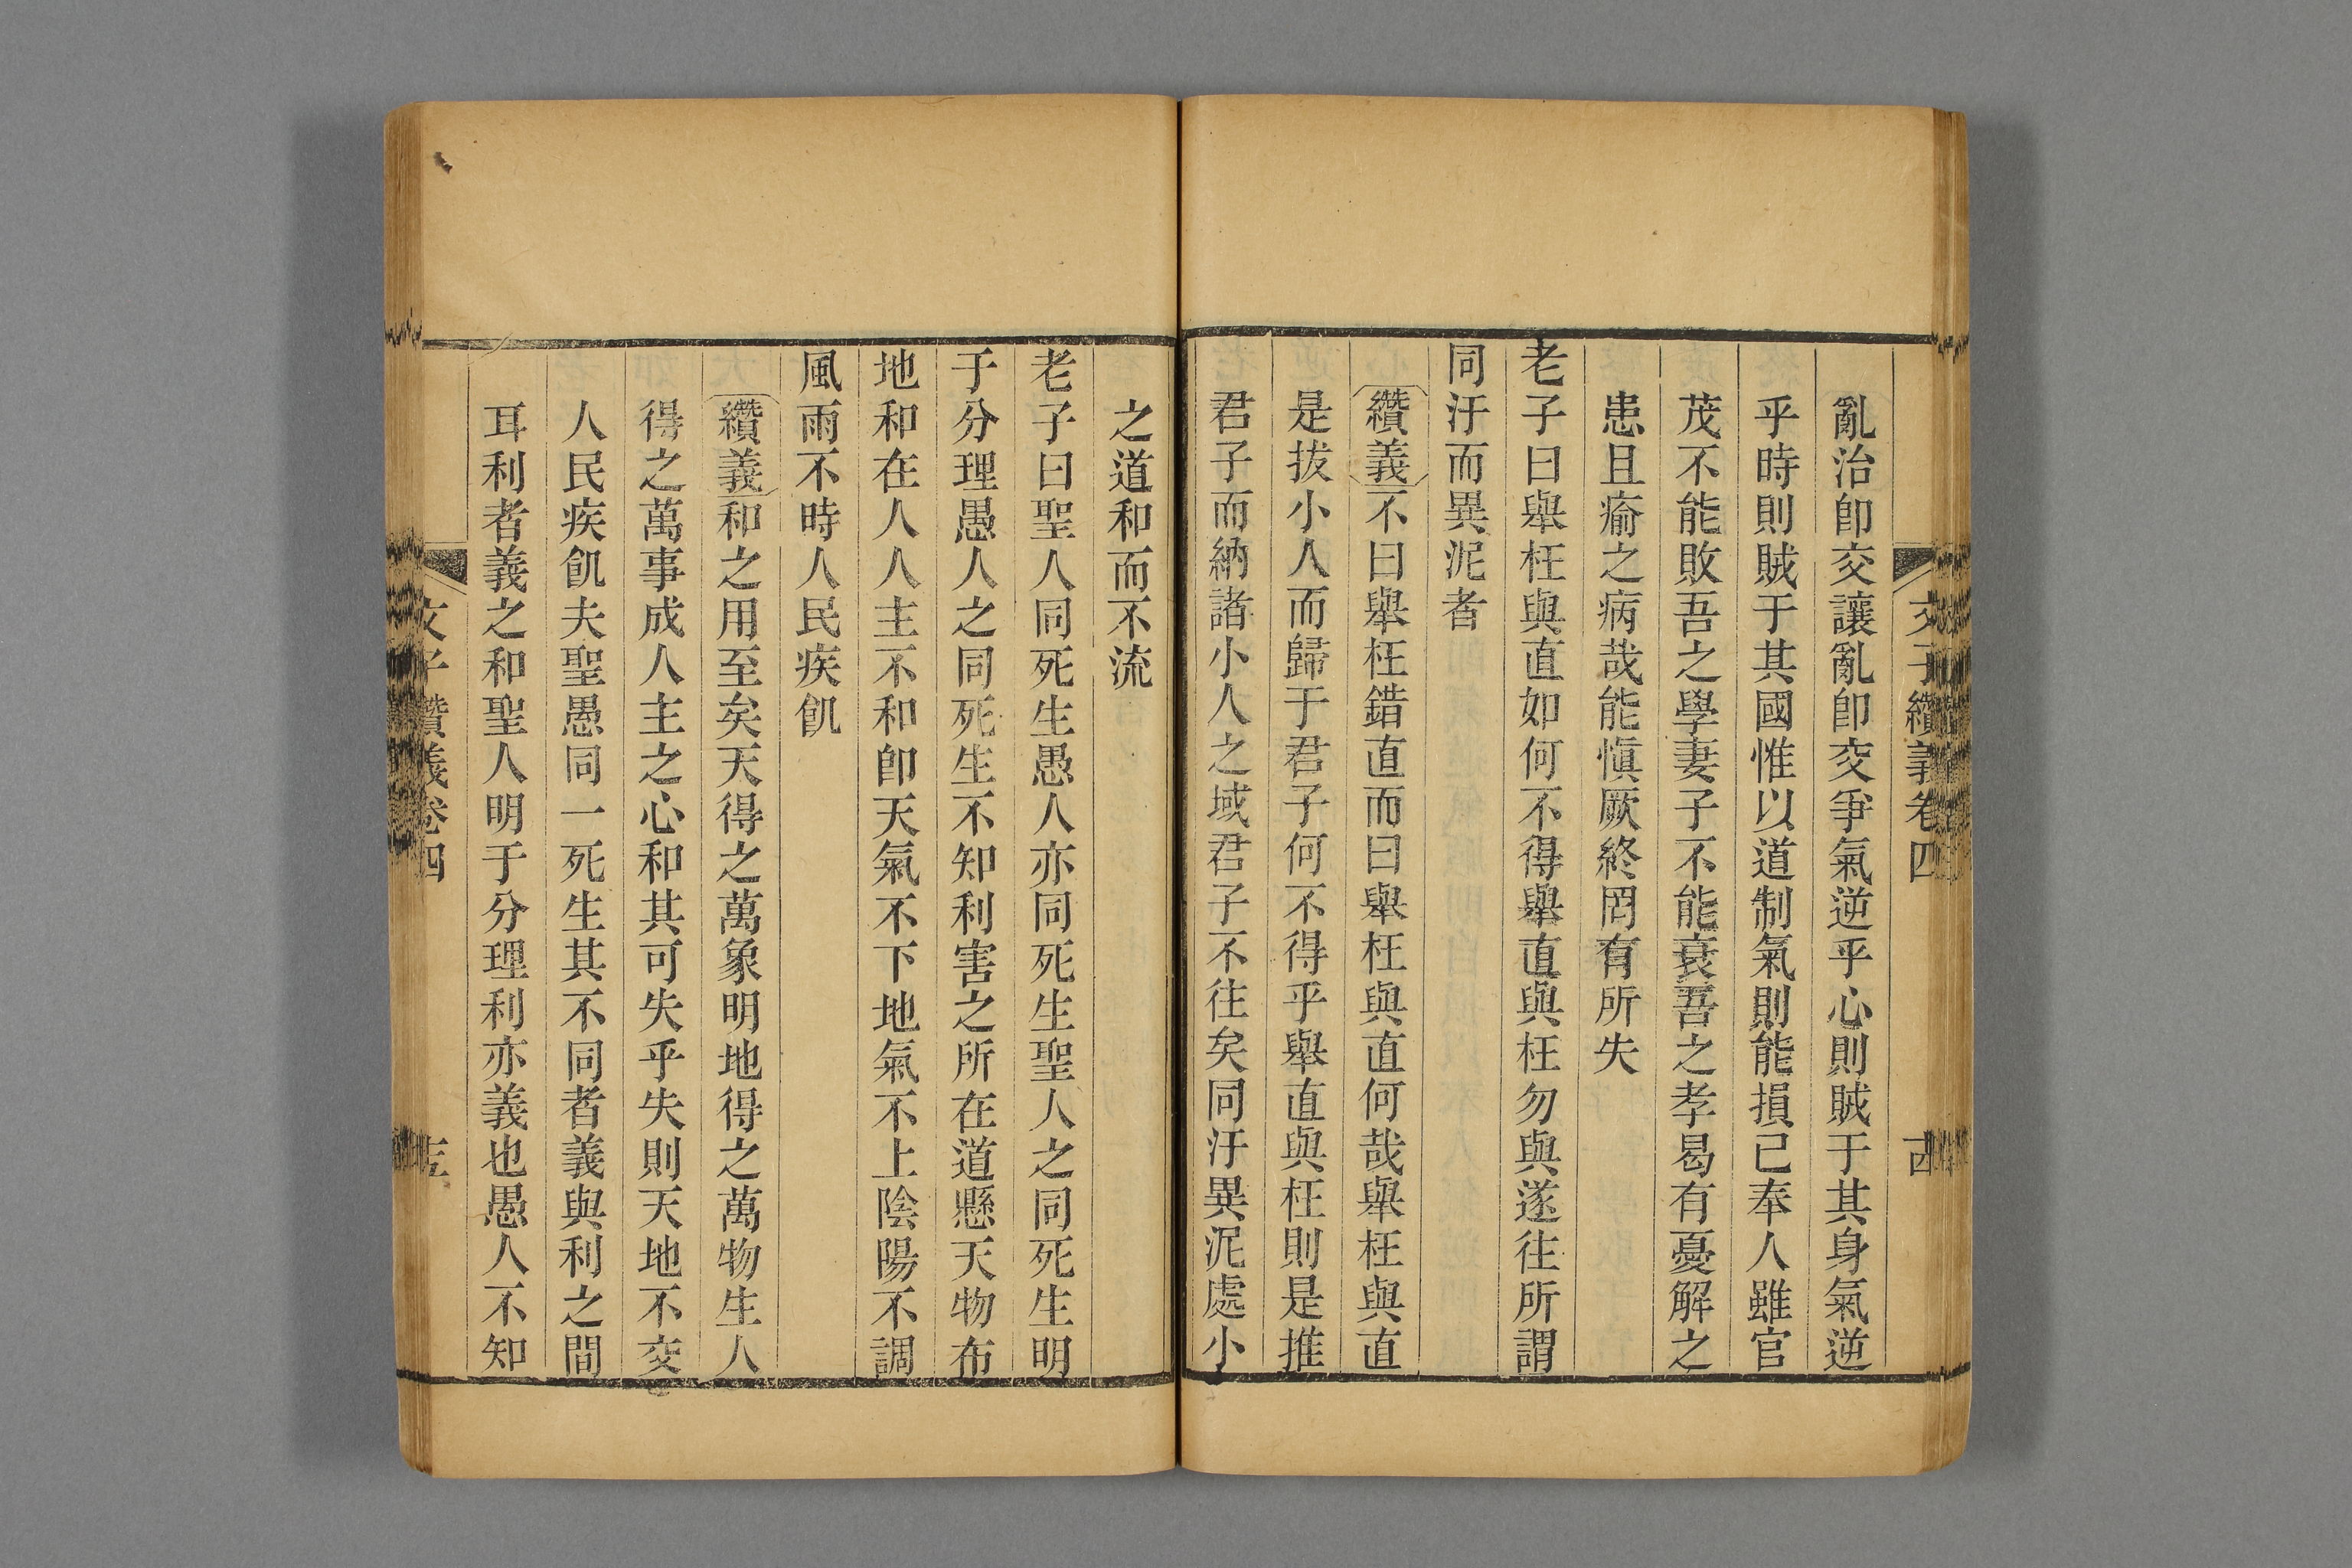 文子纘義卷四
亂治卽交讓亂卽交爭氣逆乎心則賊于其身氣逆
乎時則賊于其國惟以道制氣則能損已奉人雖官
茂不能敗吾之學妻子不能衰吾之孝曷有憂解之
患且瘉之病哉能愼厥終罔有所失
老子曰舉枉與直如何不得舉直與枉勿與遂往所謂
同汙而異泥者
纘義不曰舉枉錯直而曰舉枉與直何哉舉枉與直
是拔小人而歸于君子何不得乎舉直與枉則是推
君子而納諸小人之域君子不往矣同汙異泥處小
之道和而不流
老子曰聖人同死生愚人亦同死生聖人之同死生明
于分理愚人之同死生不知利害之所在道懸天物布
地和在人人主不和卽天氣不下地氣不上陰陽不調
風雨不時人民疾飢
纘義和之用至矣天得之萬象明地得之萬物生人
得之萬事成人主之心和其可失乎失則天地不交
人民疾飢夫聖愚同一死生其不同者義與利之間
耳利者義之和聖人明于分理利亦義也愚人不知
文子纘義卷四